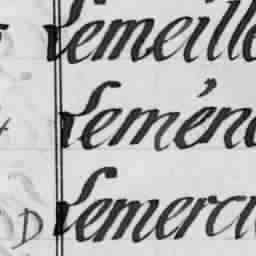 Lemeille
Leméne
D Lemerci